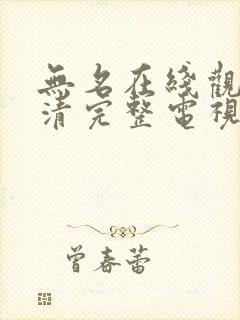 無名在綫觀
清完整電視
曾春蕾